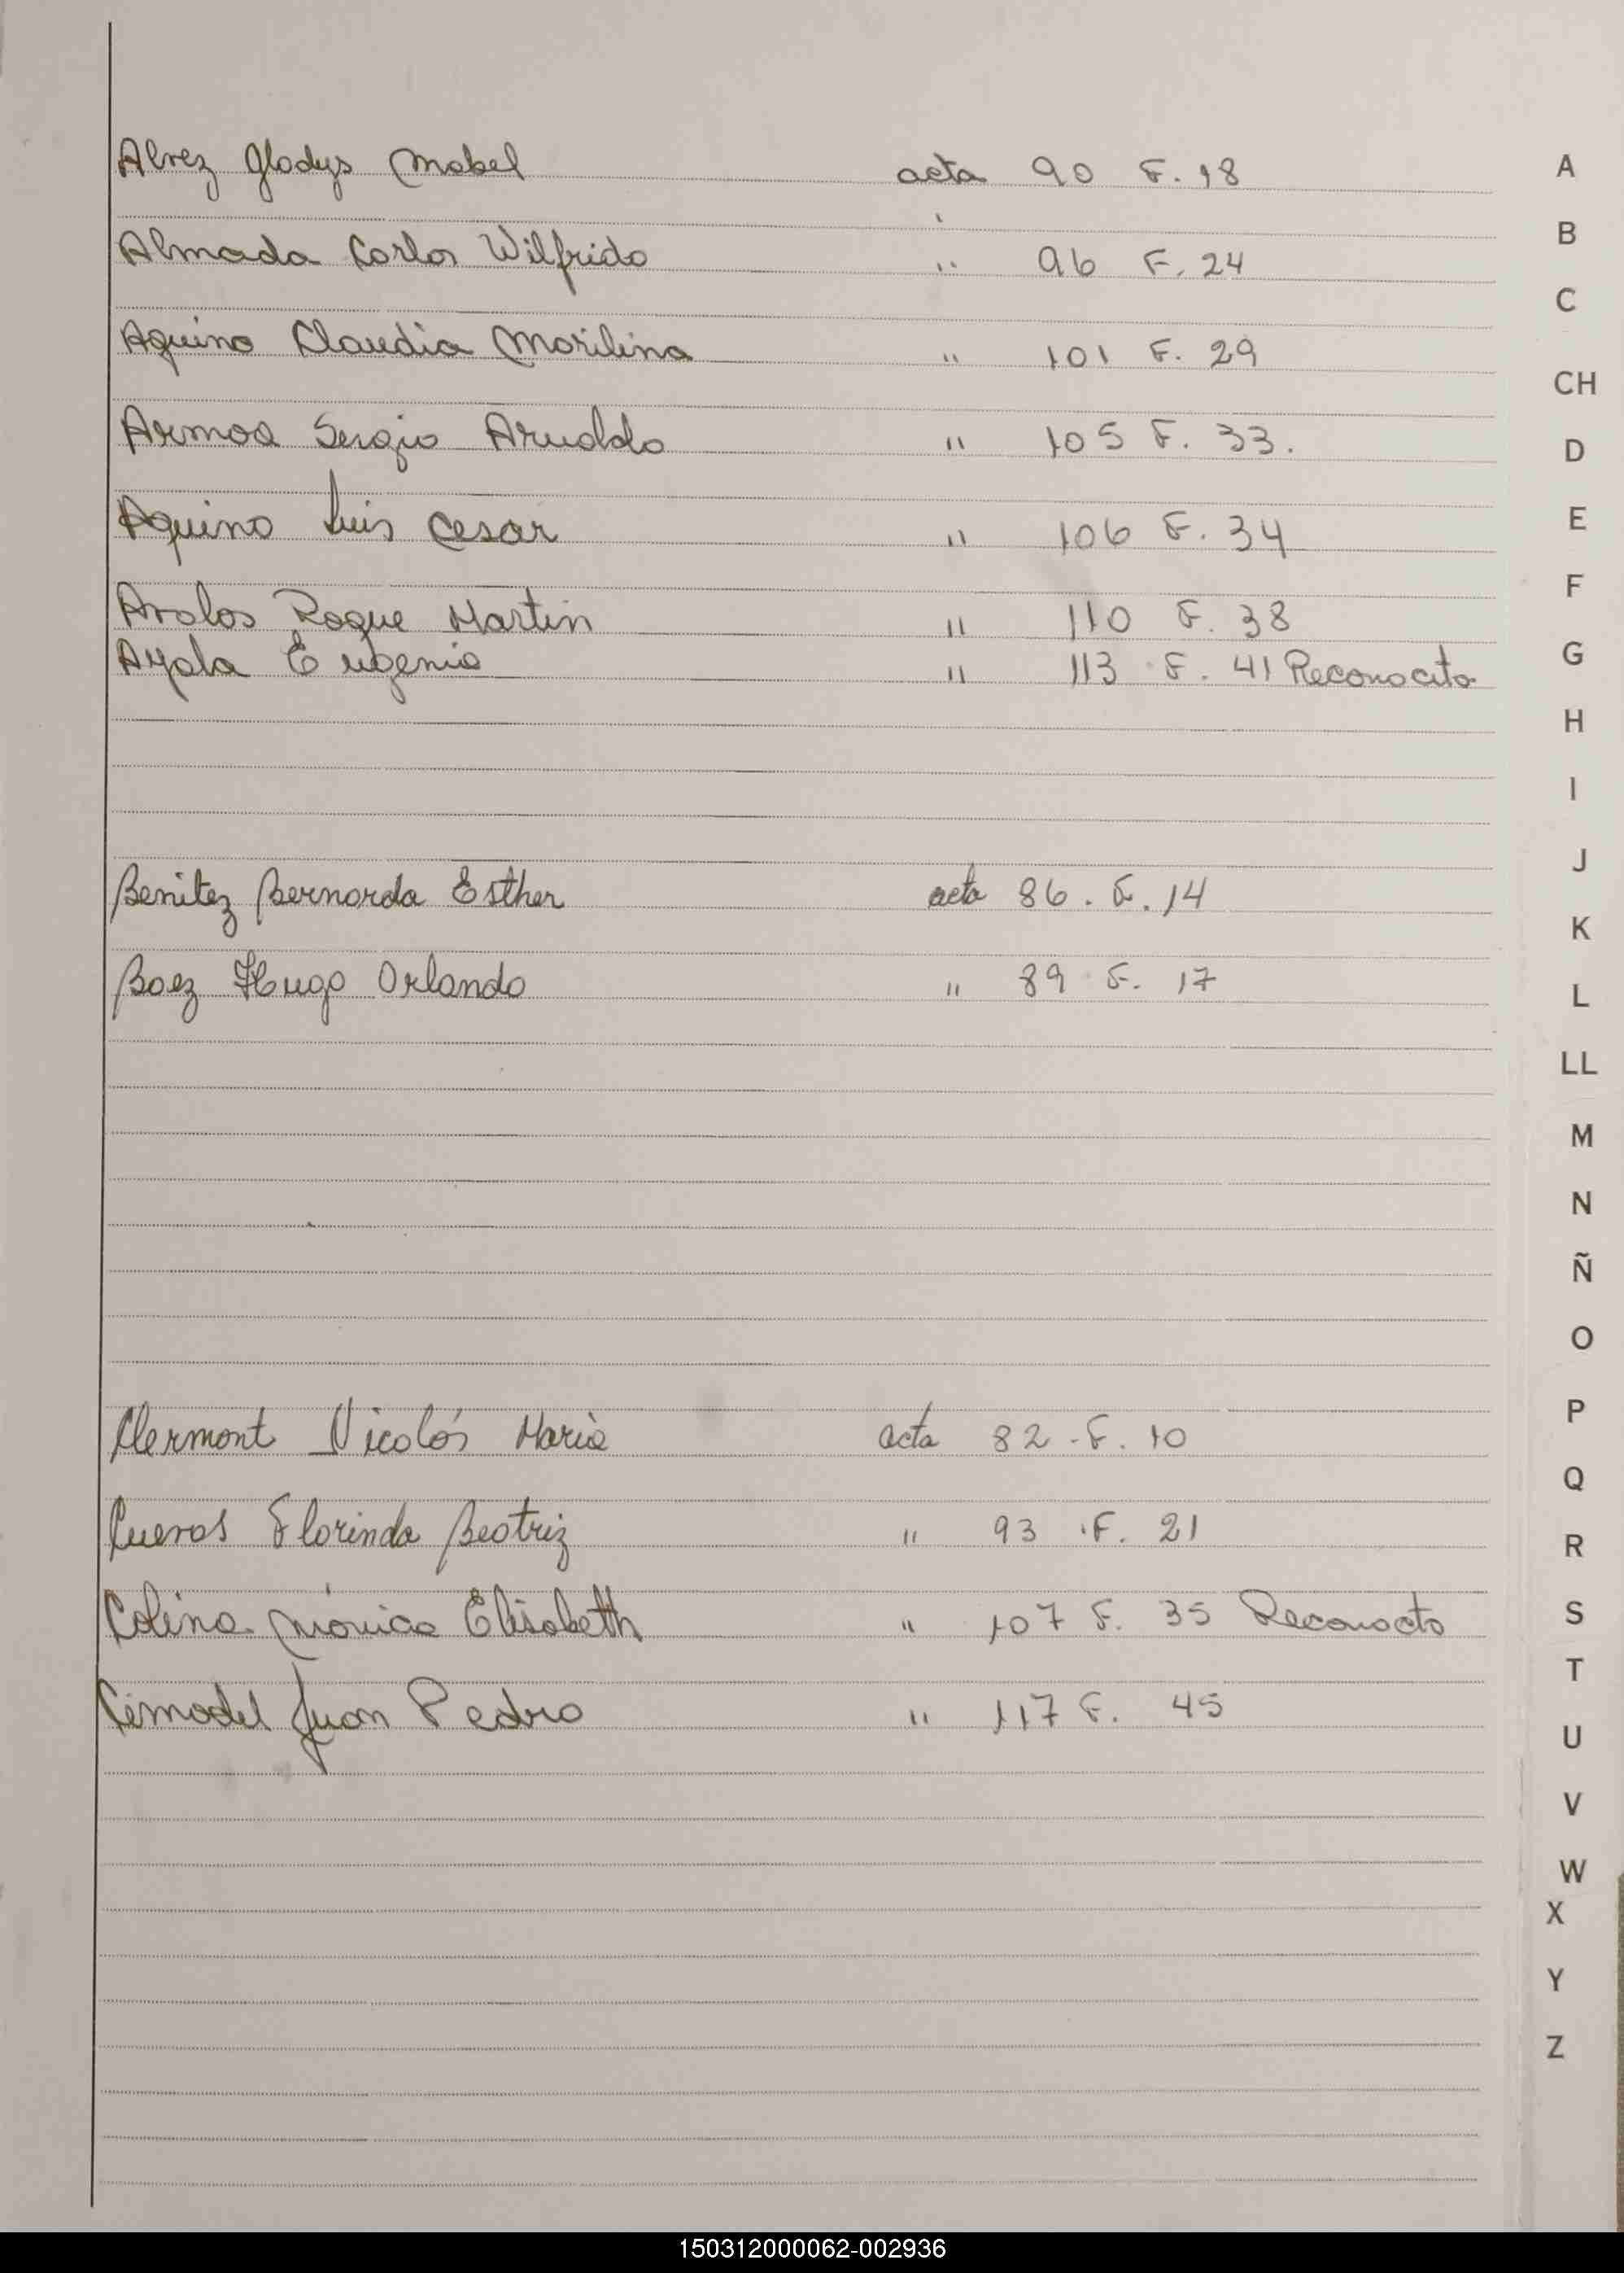 Alvez Gladys Mabel acta 90 F. 18
Almada Carlos Wilfrido " 96 F. 24
Aquino Claudia Marilina " 101 F. 29
Armoa Sergio Arnaldo " 105 F. 33.
Aquino Luis Cesar " 106 F. 34
Avalos Roque Martin " 110 F. 38
Ayala Eugenio " 113 F. 41 Reconocito
Benitez Bernarda Esther acta 86. F. 14
Baez Hugo Orlando " 89 F. 17
Clermont Nicolás Maria acta 82 - F. 10
Cuevas Florinda Beatriz " 93 .F. 21
Colina Mónica Elisabeth " 107 F. 35 Reconocto
Cimadel Juan Pedro " 117 F. 45
A
B
C
CH
D
E
F
G
H
I
J
K
L
LL
M
N
Ñ
O
P
Q
R
S
T
U
V
W
X
Y
Z
150312000062-002936